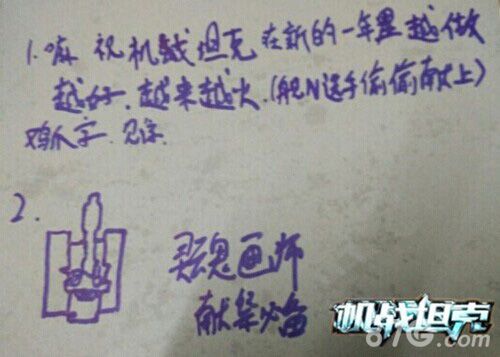 1.嘛 祝机战坦克在新的一年里越做
越好.越来越火.(舵N选手偷偷献上)
鸡爪字.见谅.
2.
灵魂画师
献祭必备
机战坦克
87G.com